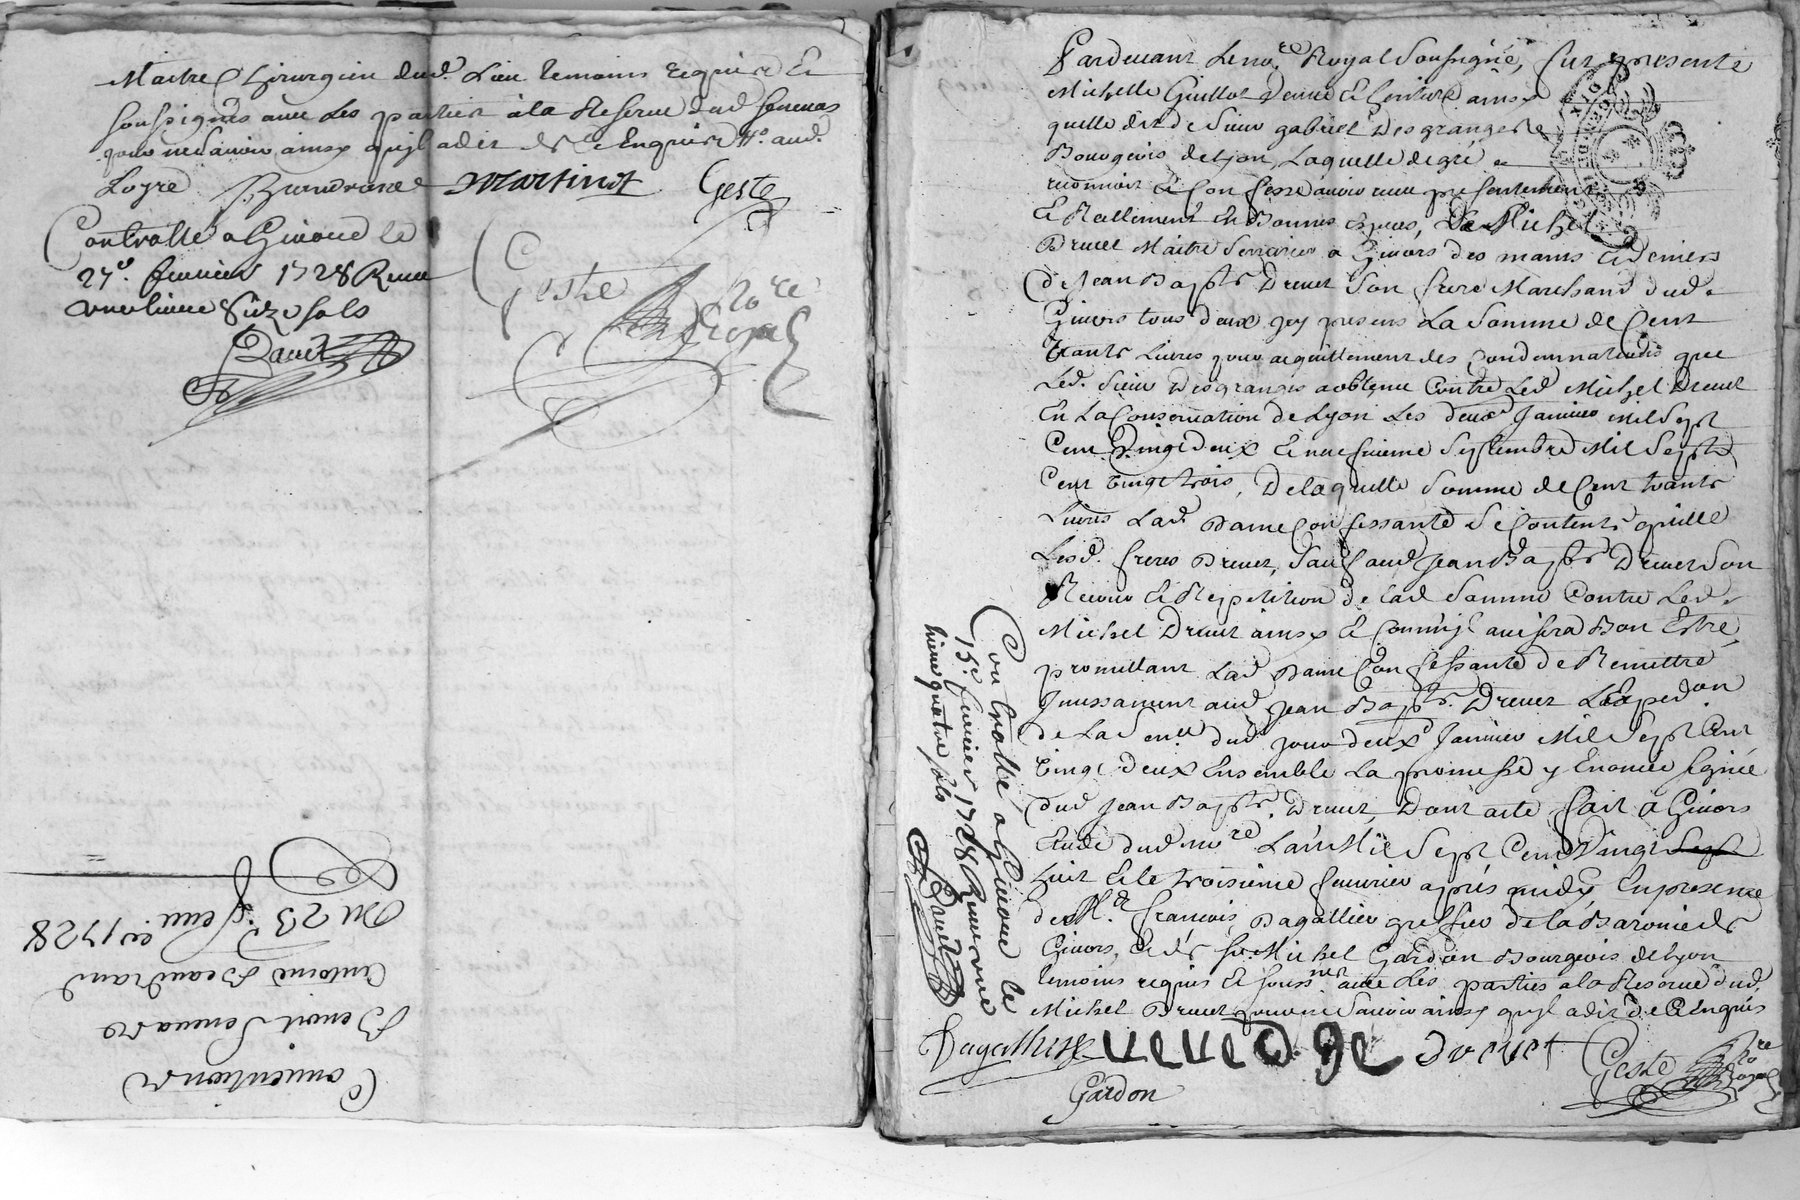 Maitre Chirurgien dud. Lieu temoins requis et
soussignés avec Les parties à la Reserve dud Senevas
pour ne Scavoir ainsy quil a dit de ce Enquis et
Loyre Beaudrand Martinot Geste
Controllé a Givors le
27e. fevrier 1728 Receu
une livre Seize sols
Davit
Geste No.re
Royal
Du 23e. feu.er 1728
Convention
Benoit Senevas
Antoine Beaudrand
Pardevant Le no.re Royal Soussigné, fut presente
Michelle Guillot Veuve et heritiere ainsy
quelle dit de Sieur gabriel Desgranges
Bourgeois de Lyon, Laquelle de gré
reconnoit et Confesse avoir receu presentement
et Reellement En Bonnes Especes, De Michel
Drevet Maitre Serrurier a Givors des mains et deniers
de Jean Bapte Drevet Son frere Marchand dud.
Givors tous deux icy presens La Somme de Cent
trante Livres pour acquittement des Condamnations que
Led. Sieur Desgranges a obtenu Contre Led Michel Drevet
En La Conservation de Lyon Les deux Janvier mil Sept
Cent Vingt deux et neufvieme Septembre Mil Sept
Cent vingt trois, De laquelle Somme de Cent trante
Livres Lad Dame Confessante Se Contente quitte
Lesd. freres Drevet, Sauf aud Jean Bapte Drevet Son
Recours et Repetition de lad Somme Contre Led.
Michel Drevet ainsy et Comme il avisera Bon Estre,
promettant Lad Dame Confessante de Remettre
Incessament aud Jean Bapte. Drevet L'Exped.on
de La Sen.ce dud jour deux Janvier Mil Sept Cent
vingt deux Ensemble La promesse y Enoncée Signée
dud Jean Bapte. Drevet, Dont acte fait à Givors
Etude dud no.re L'an Mil Sept Cent Vingt Sept
huit et le troisieme fevrier après midy En presence
de M.e François Dagallier greffier de la Baronie de
Givors, et de Sr. Michel Gardon Bourgeois de Lyon
temoins requis et Souss.nez avec Les parties a la Reserve dud.
Michel Drevet pour ne Scavoir ainsy quil a dit de ce Enquis
Dagallier veue D. ge drevet Geste No.re
Royal
Gardon
Controllé a Givors le
15e. fevrier 1728 Receu une
livre quatre sols
Davit